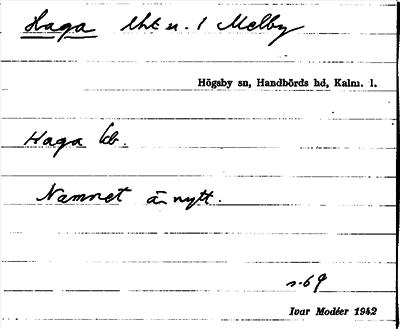 Haga lht u. 1 Melby
Högsby sn, Handbörds hd, Kalm. l.
Haga lb.
Namnet är nytt.
s. 69
Ivar Modéer 1942